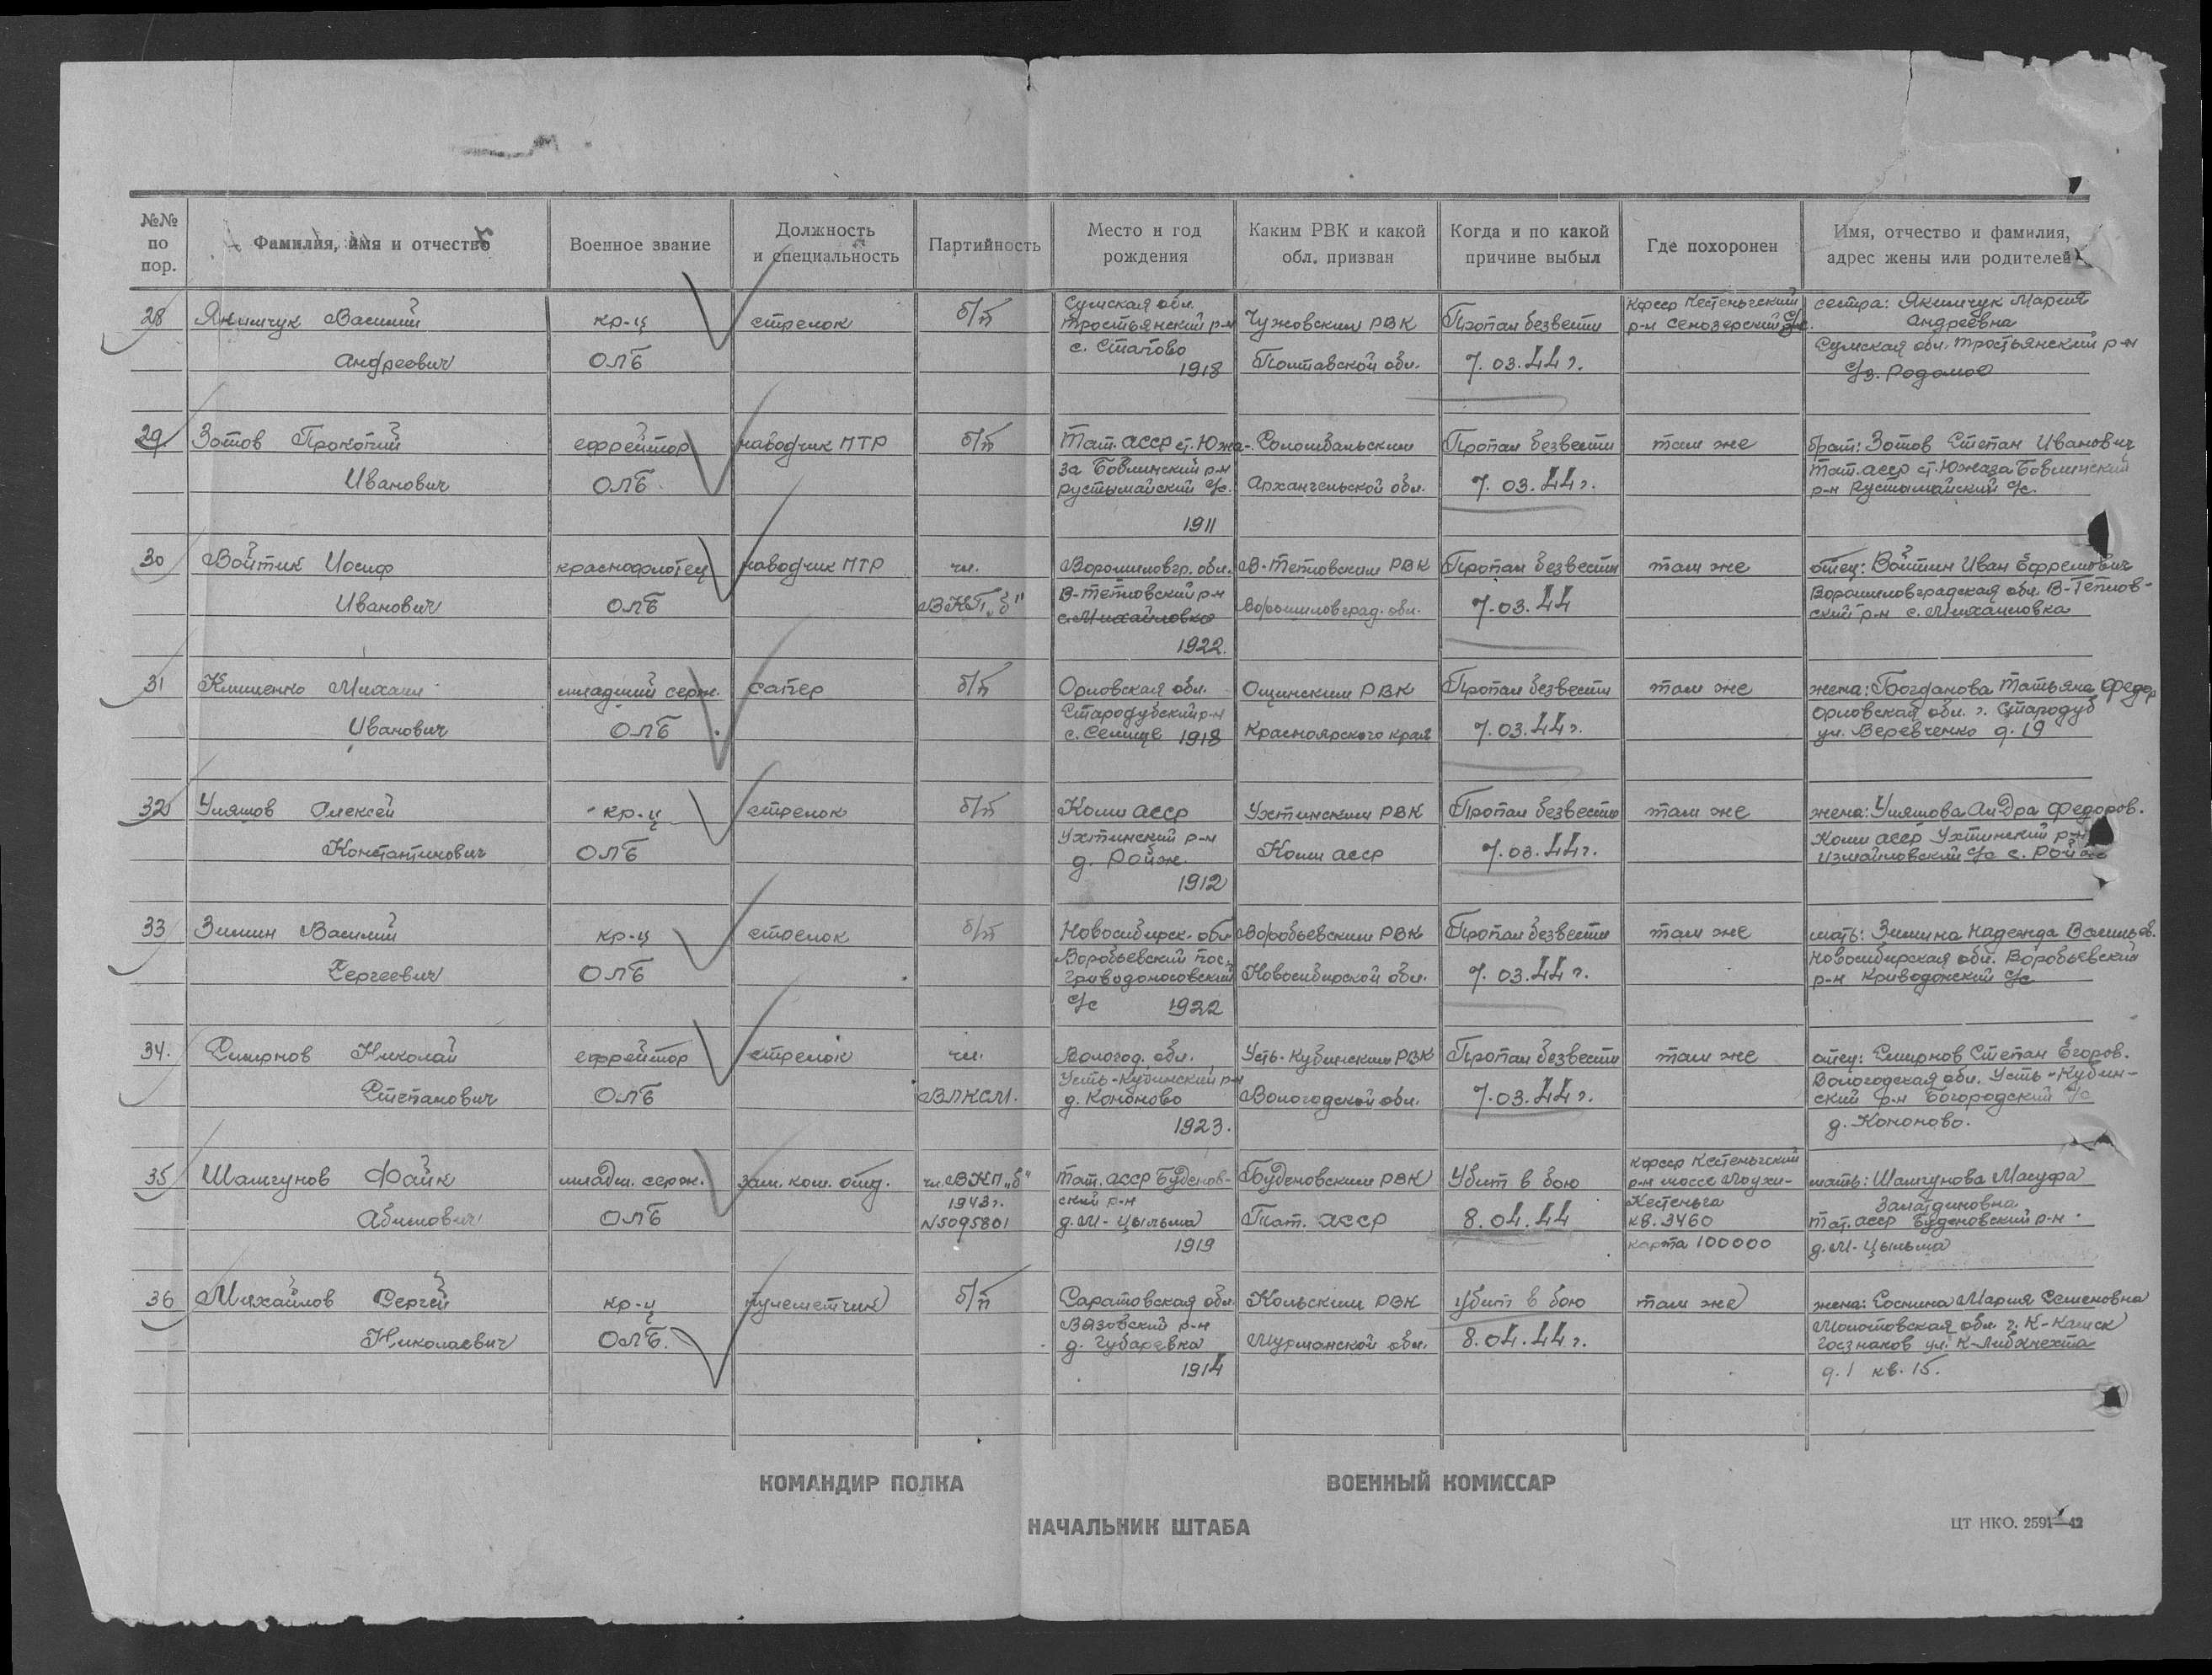 №№ по пор.
Фамилия, имя и отчество
Военное звание
Должность и специальность
Партийность
Место и год рождения
Каким РВК и какой обл. призван
Когда и по какой причине выбыл
Где похоронен
Имя, отчество и фамилия, адрес жены или родителей
28
Якимчук Василий
Андреевич
кр-ц
ОЛБ
стрелок
б/п
Сумская обл.
Тростьянский р-н
с. Статово
1918
Чужовским РВК
Полтавской обл.
Пропал безвести
7.03.44 г.
Кфсср Кестеньгский
р-н Сенозерский с/с.
сестра: Якимчук Мария
Андреевна
Сумская обл. Тростьянский р-н
29.
Зотов Прокопий
Иванович
ефрейтор
ОЛБ
наводчик ПТР
б/п
Тат. АССР ст. Южа-
за Бовлинский р-н
Рустымайский с/с.
1911
Соломбальским
Архангельской обл.
Пропал безвести
7.03.44 г.
там же
брат: Зотов Степан Иванович
Тат. АССР ст. Южаза Бовлинский
р-н Рустымайский с/с.
30
Войтик Иосиф
Иванович
краснофлотец
ОЛБ
наводчик ПТР
чл.
ВКП„б"
Ворошиловгр. обл.
В-Тепловский р-н
с. Михайловка
1922.
В-Тепловским РВК
Ворошиловград. обл.
Пропал безвести
7.03.44
там же
отец: Войтик Иван Ефремович
Ворошиловградская обл. В-Теплов-
ский р-н с. Михайловка
31
Клименко Михаил
Иванович
младший серж.
ОЛБ
сапер
б/п
Орловская обл.
Стародубский р-н
с. Селище 1918
Ощинским РВК
Красноярского края
Пропал безвести
7.03.44 г.
там же
жена: Богданова Татьяна Федор
Орловская обл. г. Стародуб
ул. Веревченко д. 19
32
Уляшов Алексей
Константинович
кр-ц
ОЛБ
стрелок
б/п
Коми АССР
Ухтинский р-н
д. Ройж.
1912
Ухтинским РВК
Коми АССР
Пропал безвести
7.03.44 г.
там же
жена: Уляшова Ал-дра Федоров.
Коми АССР Ухтинский р-н
Измайловский с/с с.
33
Зимин Василий
Сергеевич
кр-ц
ОЛБ
стрелок
б/п
Новосибирск. обл
Воробьевский пос.
с/с 1922
Воробьевским РВК
Новосибирской обл.
Пропал безвести
7.03.44 г.
там же
мать: Зимина Надежда Васильев.
Новосибирская обл. Воробьевский
р-н Криводонский с/с
34.
Смирнов Николай
Степанович
ефрейтор
ОЛБ
стрелок
чл.
ВЛКСМ.
Вологод. обл.
Усть-Кубинский р-н
д. Кононово
1923.
Усть-Кубинским РВК
Вологодской обл.
Пропал безвести
7.03.44 г.
там же
отец: Смирнов Степан Егоров.
Вологодская обл. Усть-Кубин-
ский р-н Богородский с/с
д. Кононово.
35
Шамгунов Файк
Абимович
младш. серж.
ОЛБ
зам. ком. отд.
чл. ВКП„б"
1943 г.
N5095801
Тат. АССР Буденов-
ский р-н
д. М-Цыльма
1919
Буденовским РВК
Тат. АССР
Убит в бою
8.04.44
Кфсср Кестеньгский
р-н шоссе Лоухи-
Кестеньга
кв. 3460
карта 100000
мать: Шамгунова Магуфа
Залятдиновна
Тат. АССР Буденовский р-н
д. М-Цыльма
36
Михайлов Сергей
Николаевич
кр-ц
ОЛБ.
пулеметчик
б/п
Саратовская обл
Вязовский р-н
д. Губаревка
1914
Кольским РВК
Мурманской обл.
Убит в бою
8.04.44 г.
там же
жена: Соснина Мария Семеновна
Молотовская обл. г. К-Камск
Госзнаков ул. К-Либкнехта
д. 1 кв. 15.
КОМАНДИР ПОЛКА
ВОЕННЫЙ КОМИССАР
НАЧАЛЬНИК ШТАБА
ЦТ НКО. 2591—42